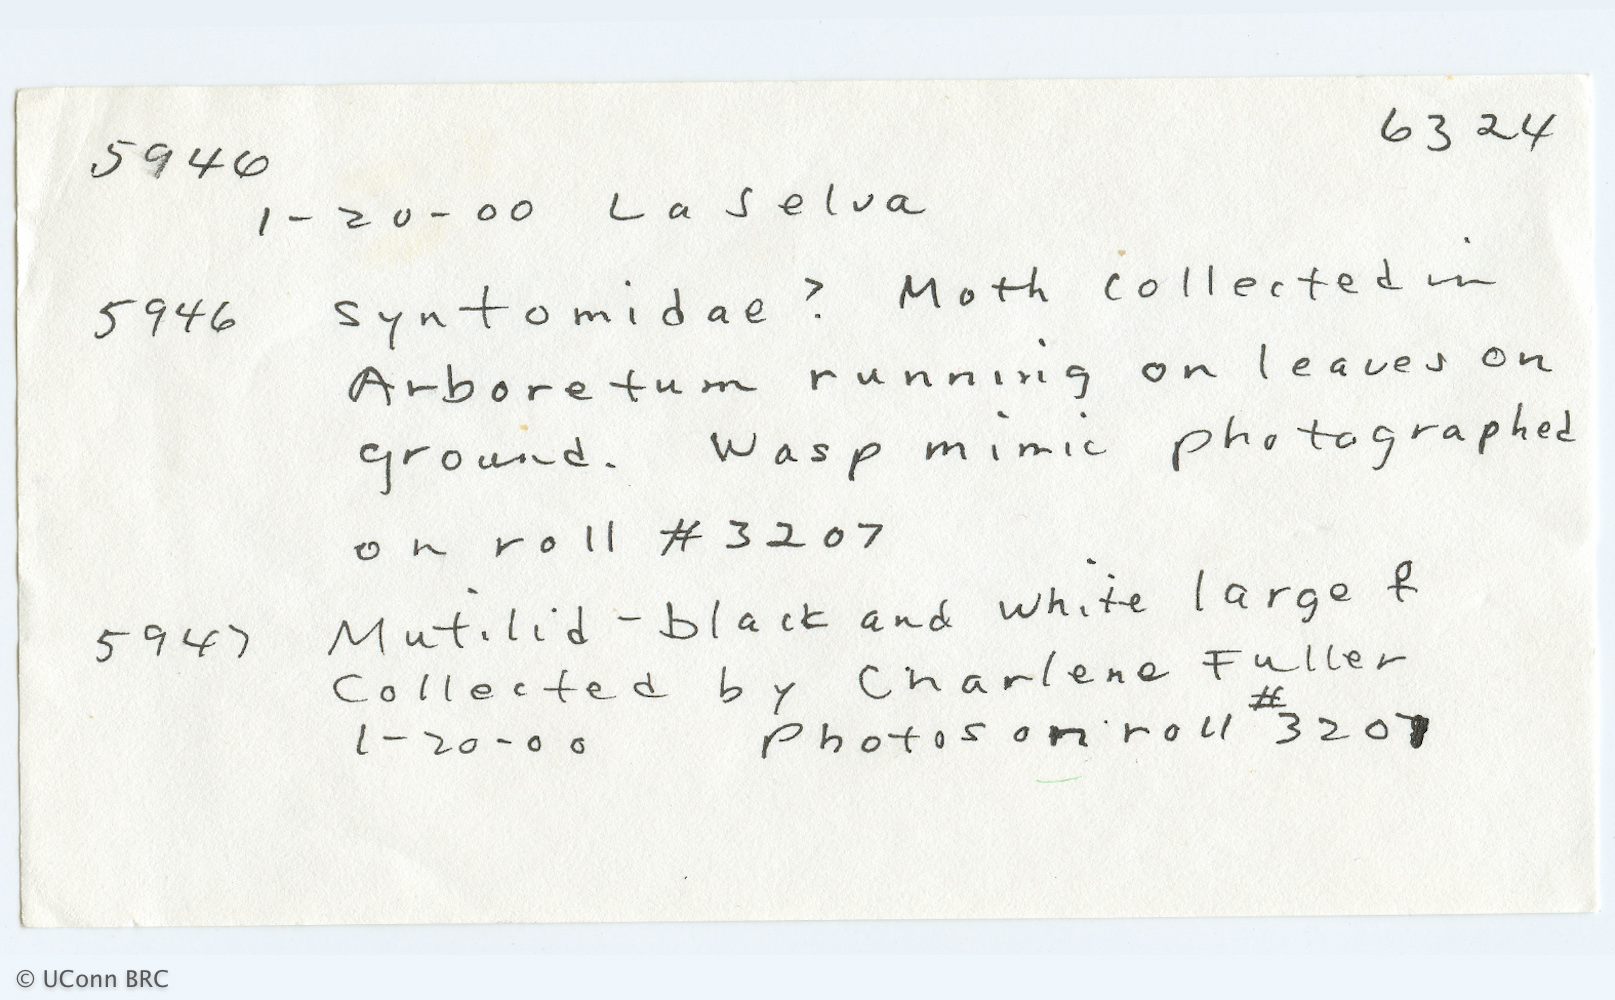 5946
6324
1-20-00 La Selva
5946 Syntomidae? Moth collected in
Arboretum running on leaves on
ground. Wasp mimic photographed
on roll #3207
5947 Mutilid - black and white large &
Collected by Charlene Fuller
1-20-00 Photos on roll #3207
© UConn BRC